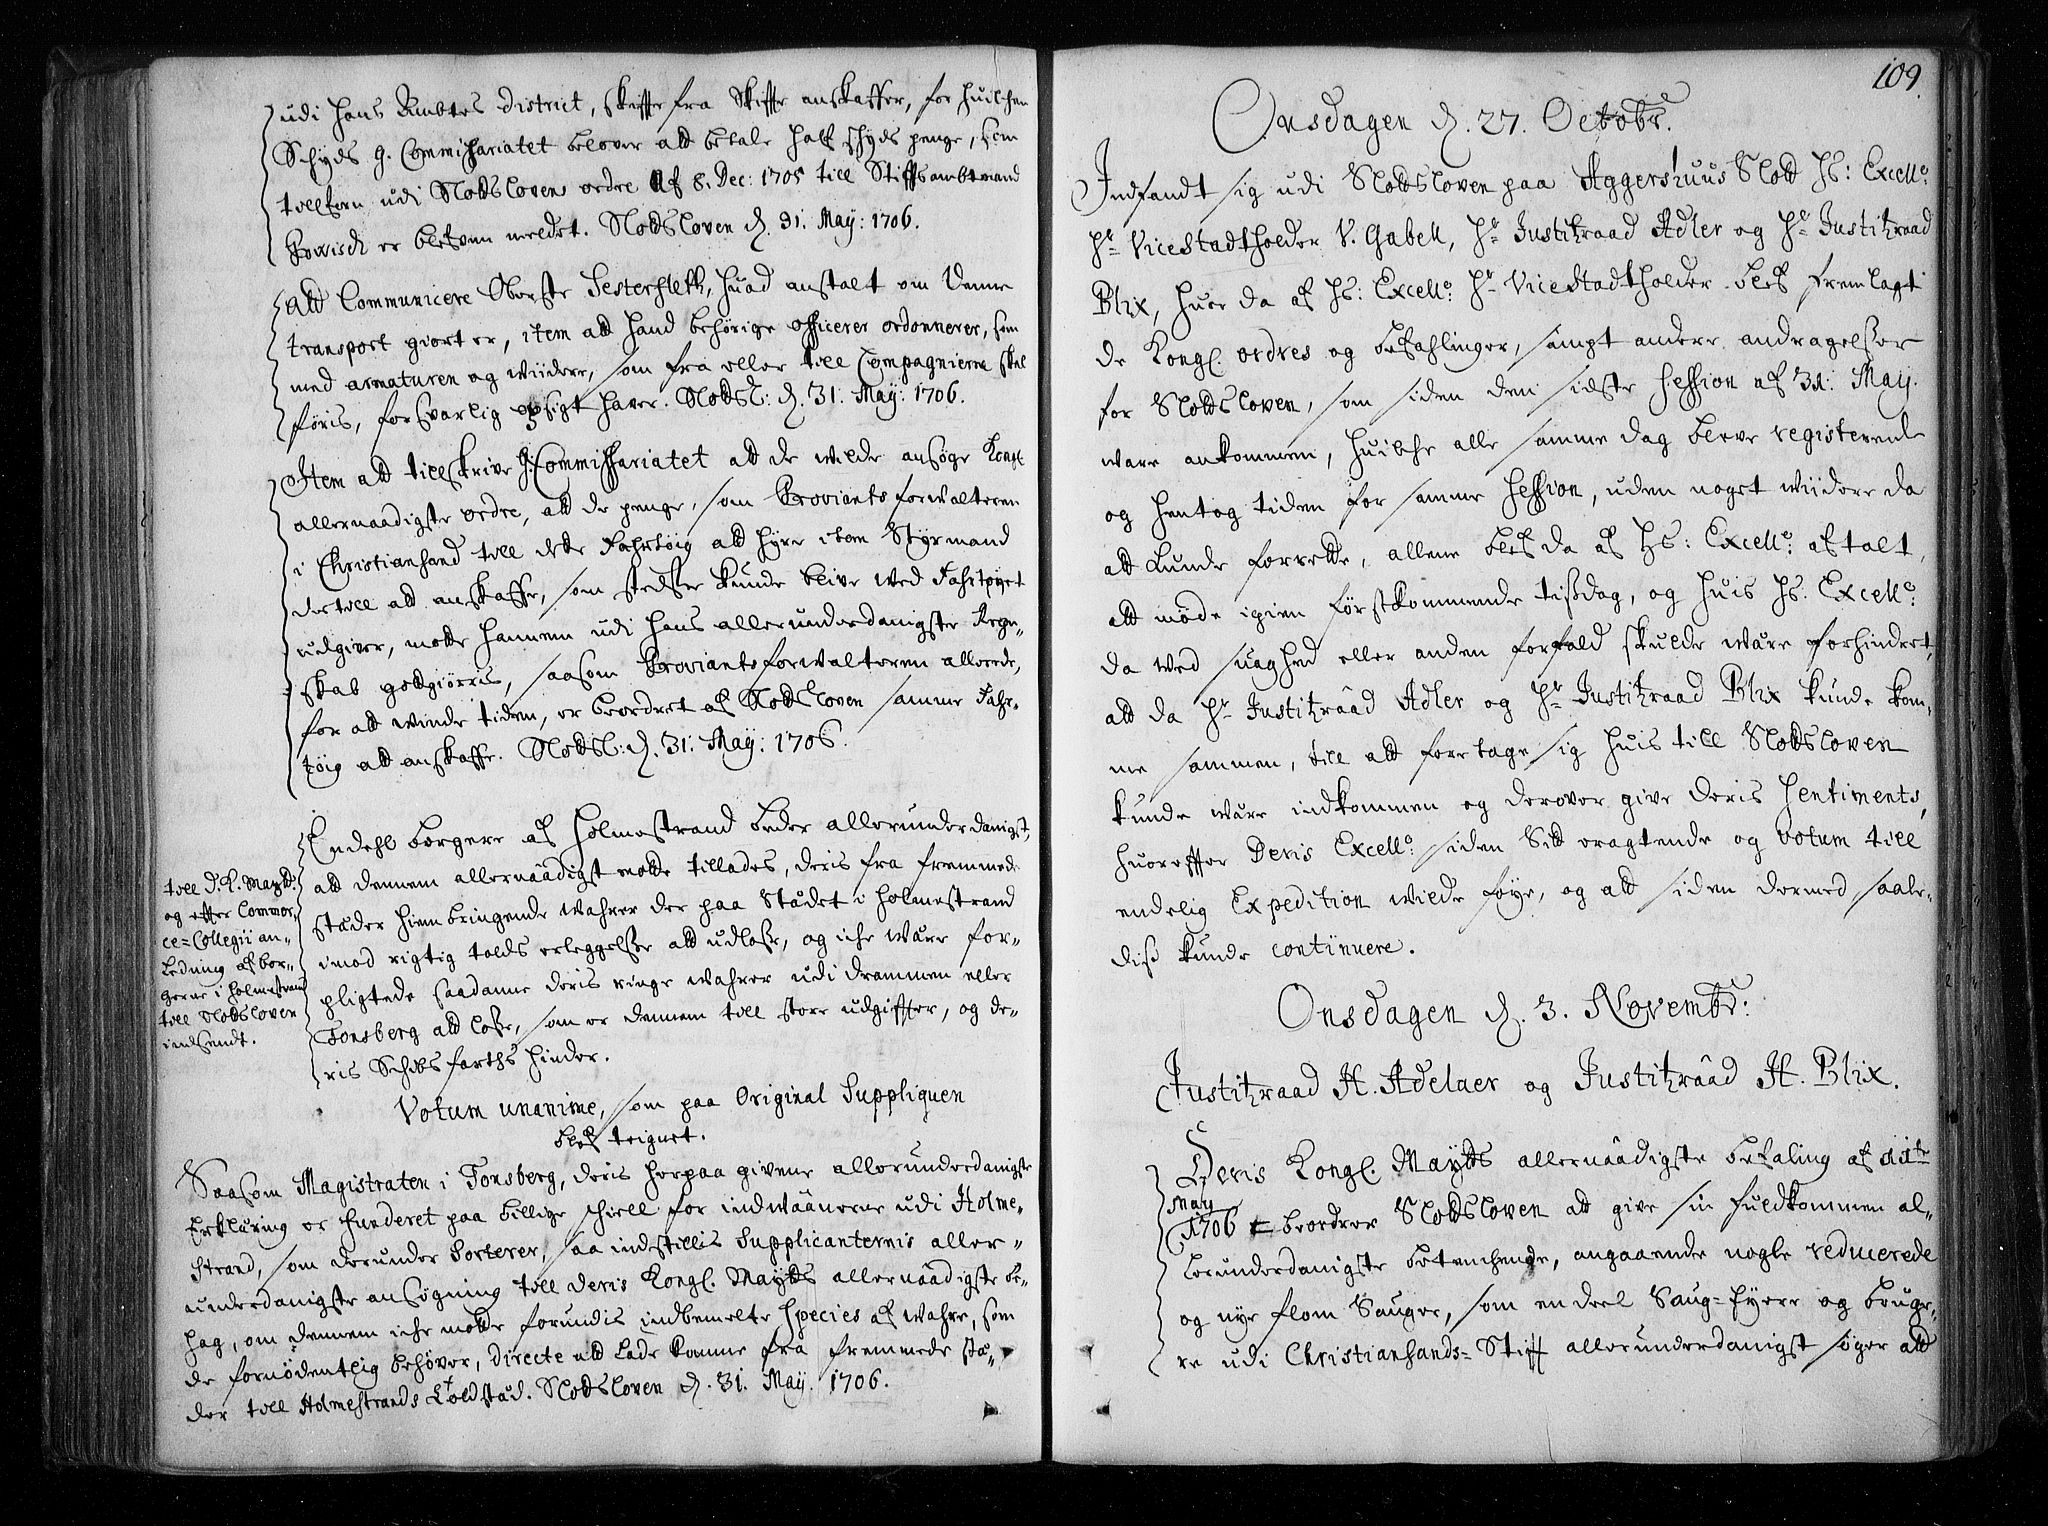 udi hans Ambtes District, skiffte fra skiffte anskaffer, for huilchen
Schyds g. Commissariatet belover att betale half schyds penge, som
tilforn udi Slotsslovens ordre af 8. Dec: 1705 till Stifftsambtmand
er blefven meldet. Slotssloven d. 31. May: 1706.
Att Communicere Oberste Sesterfleth, huad anstalt om denne
transport giort er, item att hand behörige officerer ordonnerer, som
med armaturen og wiidere, som fra eller till Compagnierne skal
föris, forsvarlig opsigt haver. Slotsl: d. 31. May: 1706.
Item att tillskrive g. Commissariatet att de wilde ansöge Kongl.
allernaadigste ordre, att de penge, som Proviantsforwalteren
i Christiansand till dette Fahrtöig att hyre item Styrmand
dertill att anskaffe, som stedse kunde blive wed Fahrtöyet
udgiver, motte hannem udi hans allerunderdanigste Regn-
skab godgiörris, saasom Proviantsforwalteren allerede,
for att winde tiden, er beordret af Slotssloven samme Fahr-
töig att anskaffe. Slotsl: d. 31. May: 1706.
Endehl borgere af Holmestrand beder allerunderdanigst,
att dennem allernaadigst motte tillades, deris fra fremmede
stæder hiembringende wahrer der paa Stædet i Holmestrand
imod rigtig tolds erleggelse att udlosse, og iche wære for-
pligtede saadanne deris ringe wahrer udi Drammen eller
Tonsberg att losse, som er dennem till store udgiffter, og de-
ris Schibsfarths hinder.
till d. K. Maytt:
og effter Commer-
ce-Collegii an-
ledning af bor-
gerne i Holmestrand
till Slotssloven
indsendt.
Votum unanime, som paa Original Suppliquen
blef teignet.
Saasom Magistraten i Tonsberg, deris herpaa givene allerunderdanigste
Erklæring er funderet paa billige skiell for indwaanerne udi Holme-
strand, som derunder Sorterer, saa indstillis Supplicanternis aller-
underdanigste ansögning till deris Kongl. Maytts allernaadigste be-
hag, om dennem iche motte forundis indbemelte species af wahre, som
de fornödentlig behöver, directe att lade komme fra fremmede stæ-
der till Holmestrands Ladsted. Slotssloven d. 31. May. 1706.
109.
Onsdagen d. 27. Octobr.
Indfandt sig udi Slotssloven paa Aggershuus Slott Hs: Excell:
Hr. ViceStadtholder V. Gabell, Hr. Justitzraad Adler og Hr. Justitzraad
Blix, huor da af Hs: Excell: Hr. ViceStadtholder blef fremlagt
de Kongl. ordres og befahlinger, sampt andere andragelser
for Slotssloven, som siden den sidste Session af 31. May.
ware ankommen, huilche alle samme dag bleve registerede
og hentog tiden for samme Session, uden noget wiidere da
att kunde forrette, allene blef da af Hs: Excell: aftalt,
att möde igien förstkommende tissdag, og huis Hs. Excell:
da wed suaghed eller anden forfald skulde wære forhindret,
att da Hr. Justitzraad Adler og Hr. Justitzraad Blix kunde kom-
me sammen, till att foretage sig huis till Slotssloven
kunde wære indkommen og derover give deris Sentiments,
huoreffter Deris Excell: siden Sitt eragtende og votum till
endelig Expedition wilde föye, og att siden dermed saale-
diss kunde continuere.
Onsdagen d. 3. Novembr:
Justitzraad H. Adelaer og Justitzraad H. Blix.
Deris Kongl. Maytts allernaadigste befaling af
May
1706 beordrer Slotssloven att give sin fuldkommen al-
lerunderdanigste betenchende, angaaende nogle reducerede
og nye flom Sauger, som en deel Saug-Eyere og bruge-
re udi Christiansands-Stift allerunderdanigst söger att